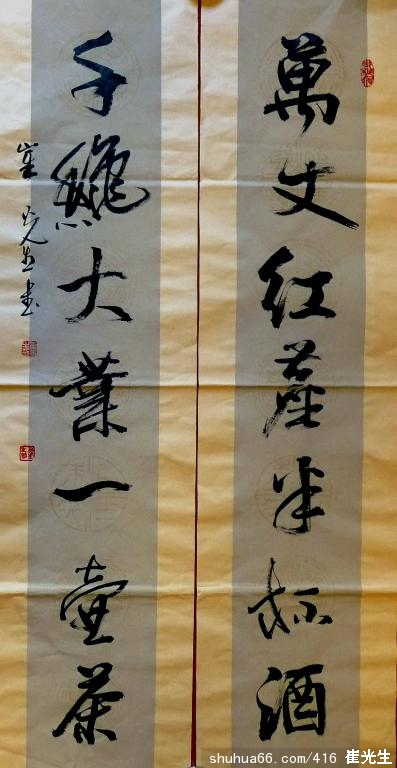 萬丈红塵半杯酒
千龝大業一壺茶
崔光生書
shuhua66.com/416 崔光生